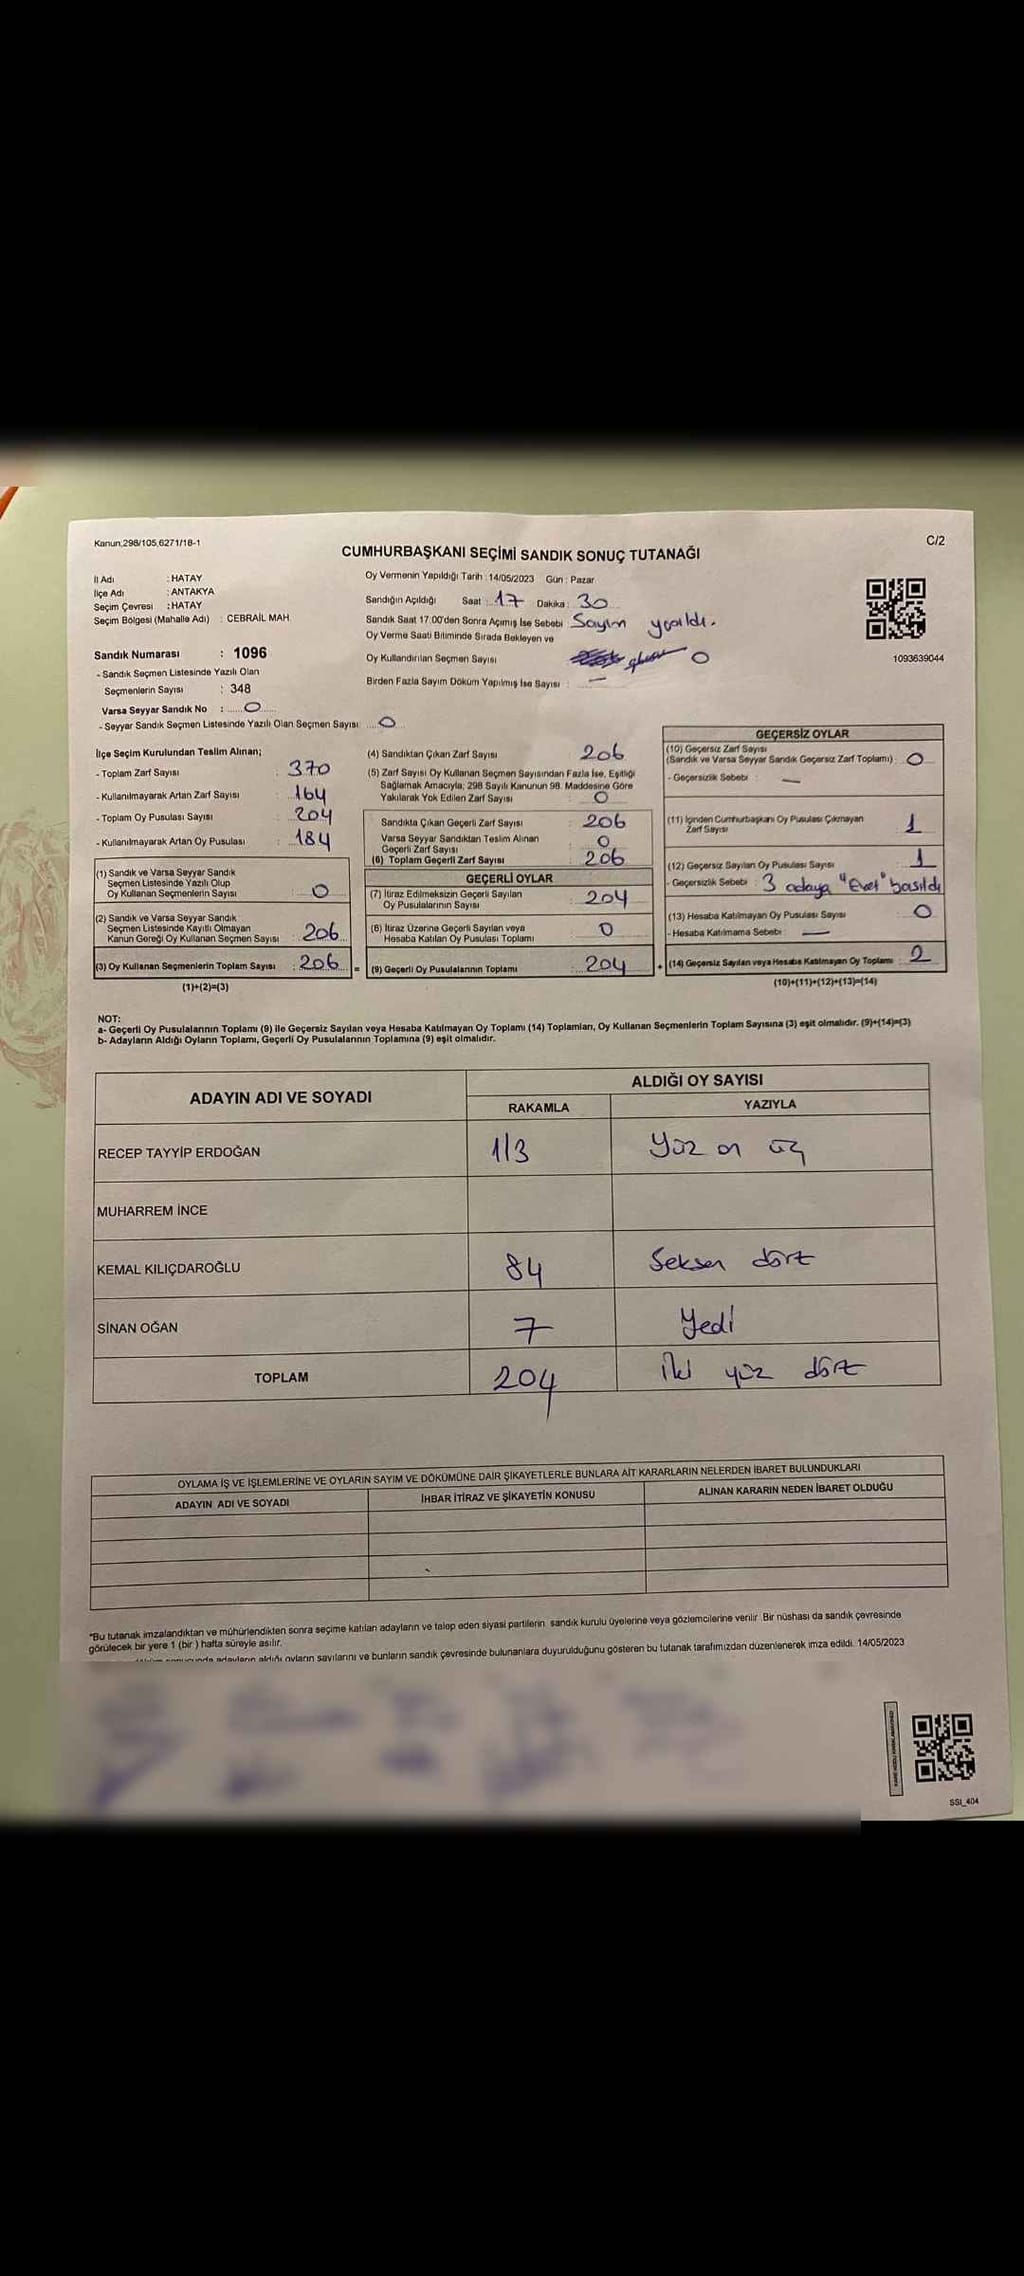 Kanun,298/105,6271/18-1
C/2
CUMHURBAŞKANI SEÇİMİ SANDIK SONUÇ TUTANAĞI
İl Adı : HATAY
İlçe Adı : ANTAKYA
Seçim Çevresi : HATAY
Seçim Bölgesi (Mahalle Adı) : CEBRAİL MAH.
Sandık Numarası : 1096
- Sandık Seçmen Listesinde Yazılı Olan
Seçmenlerin Sayısı : 348
Varsa Seyyar Sandık No : 0
- Seyyar Sandık Seçmen Listesinde Yazılı Olan Seçmen Sayısı: 0
Oy Vermenin Yapıldığı Tarih : 14/05/2023 Gün : Pazar
Sandığın Açıldığı Saat : 17 Dakika : 30
Sandık Saat 17.00'den Sonra Açımış İse Sebebi Sayım yapıldı.
Oy Verme Saati Bitiminde Sırada Bekleyen ve
Oy Kullandırılan Seçmen Sayısı 0
Birden Fazla Sayım Döküm Yapılmış İse Sayısı : —
1093639044
İlçe Seçim Kurulundan Teslim Alınan;
- Toplam Zarf Sayısı : 370
- Kullanılmayarak Artan Zarf Sayısı : 164
- Toplam Oy Pusulası Sayısı : 204
- Kullanılmayarak Artan Oy Pusulası : 184
(1) Sandık ve Varsa Seyyar Sandık
Seçmen Listesinde Yazılı Olup
Oy Kullanan Seçmenlerin Sayısı : 0
(2) Sandık ve Varsa Seyyar Sandık
Seçmen Listesinde Kayıtlı Olmayan
Kanun Gereği Oy Kullanan Seçmen Sayısı : 206
(3) Oy Kullanan Seçmenlerin Toplam Sayısı : 206
(1)+(2)=(3)
(4) Sandıktan Çıkan Zarf Sayısı : 206
(5) Zarf Sayısı Oy Kullanan Seçmen Sayısından Fazla İse, Eşitliği
Sağlamak Amacıyla; 298 Sayılı Kanunun 98. Maddesine Göre
Yakılarak Yok Edilen Zarf Sayısı : 0
Sandıkta Çıkan Geçerli Zarf Sayısı : 206
Varsa Seyyar Sandıktan Teslim Alınan
Geçerli Zarf Sayısı : 0
(6) Toplam Geçerli Zarf Sayısı : 206
GEÇERLİ OYLAR
(7) İtiraz Edilmeksizin Geçerli Sayılan
Oy Pusulalarının Sayısı : 204
(8) İtiraz Üzerine Geçerli Sayılan veya
Hesaba Katılan Oy Pusulası Toplamı : 0
= (9) Geçerli Oy Pusulalarının Toplamı : 204
GEÇERSİZ OYLAR
(10) Geçersiz Zarf Sayısı
(Sandık ve Varsa Seyyar Sandık Geçersiz Zarf Toplamı) : 0
- Geçersizlik Sebebi : —
(11) İçinden Cumhurbaşkanı Oy Pusulası Çıkmayan
Zarf Sayısı : 1
(12) Geçersiz Sayılan Oy Pusulası Sayısı : 1
- Geçersizlik Sebebi : 3 adaya "Evet" basıldı
(13) Hesaba Katılmayan Oy Pusulası Sayısı : 0
- Hesaba Katılmama Sebebi : —
+ (14) Geçersiz Sayılan veya Hesaba Katılmayan Oy Toplamı : 2
(10)+(11)+(12)+(13)=(14)
NOT:
a- Geçerli Oy Pusulalarının Toplamı (9) ile Geçersiz Sayılan veya Hesaba Katılmayan Oy Toplamı (14) Toplamları, Oy Kullanan Seçmenlerin Toplam Sayısına (3) eşit olmalıdır. (9)+(14)=(3)
b- Adayların Aldığı Oyların Toplamı, Geçerli Oy Pusulalarının Toplamına (9) eşit olmalıdır.
ADAYIN ADI VE SOYADI
ALDIĞI OY SAYISI
RAKAMLA YAZIYLA
RECEP TAYYİP ERDOĞAN 113 Yüz on üç
MUHARREM İNCE
KEMAL KILIÇDAROĞLU 84 Seksen dört
SİNAN OĞAN 7 Yedi
TOPLAM 204 İki yüz dört
OYLAMA İŞ VE İŞLEMLERİNE VE OYLARIN SAYIM VE DÖKÜMÜNE DAİR ŞİKAYETLERLE BUNLARA AİT KARARLARIN NELERDEN İBARET BULUNDUKLARI
ADAYIN ADI VE SOYADI İHBAR İTİRAZ VE ŞİKAYETİN KONUSU ALINAN KARARIN NEDEN İBARET OLDUĞU
*Bu tutanak imzalandıktan ve mühürlendikten sonra seçime katılan adayların ve talep eden siyasi partilerin sandık kurulu üyelerine veya gözlemcilerine verilir. Bir nüshası da sandık çevresinde
görülecek bir yere 1 (bir) hafta süreyle asılır.
adayların aldığı oyların sayılarını ve bunların sandık çevresinde bulunanlara duyurulduğunu gösteren bu tutanak tarafımızdan düzenlenerek imza edildi. 14/05/2023
SSI_404